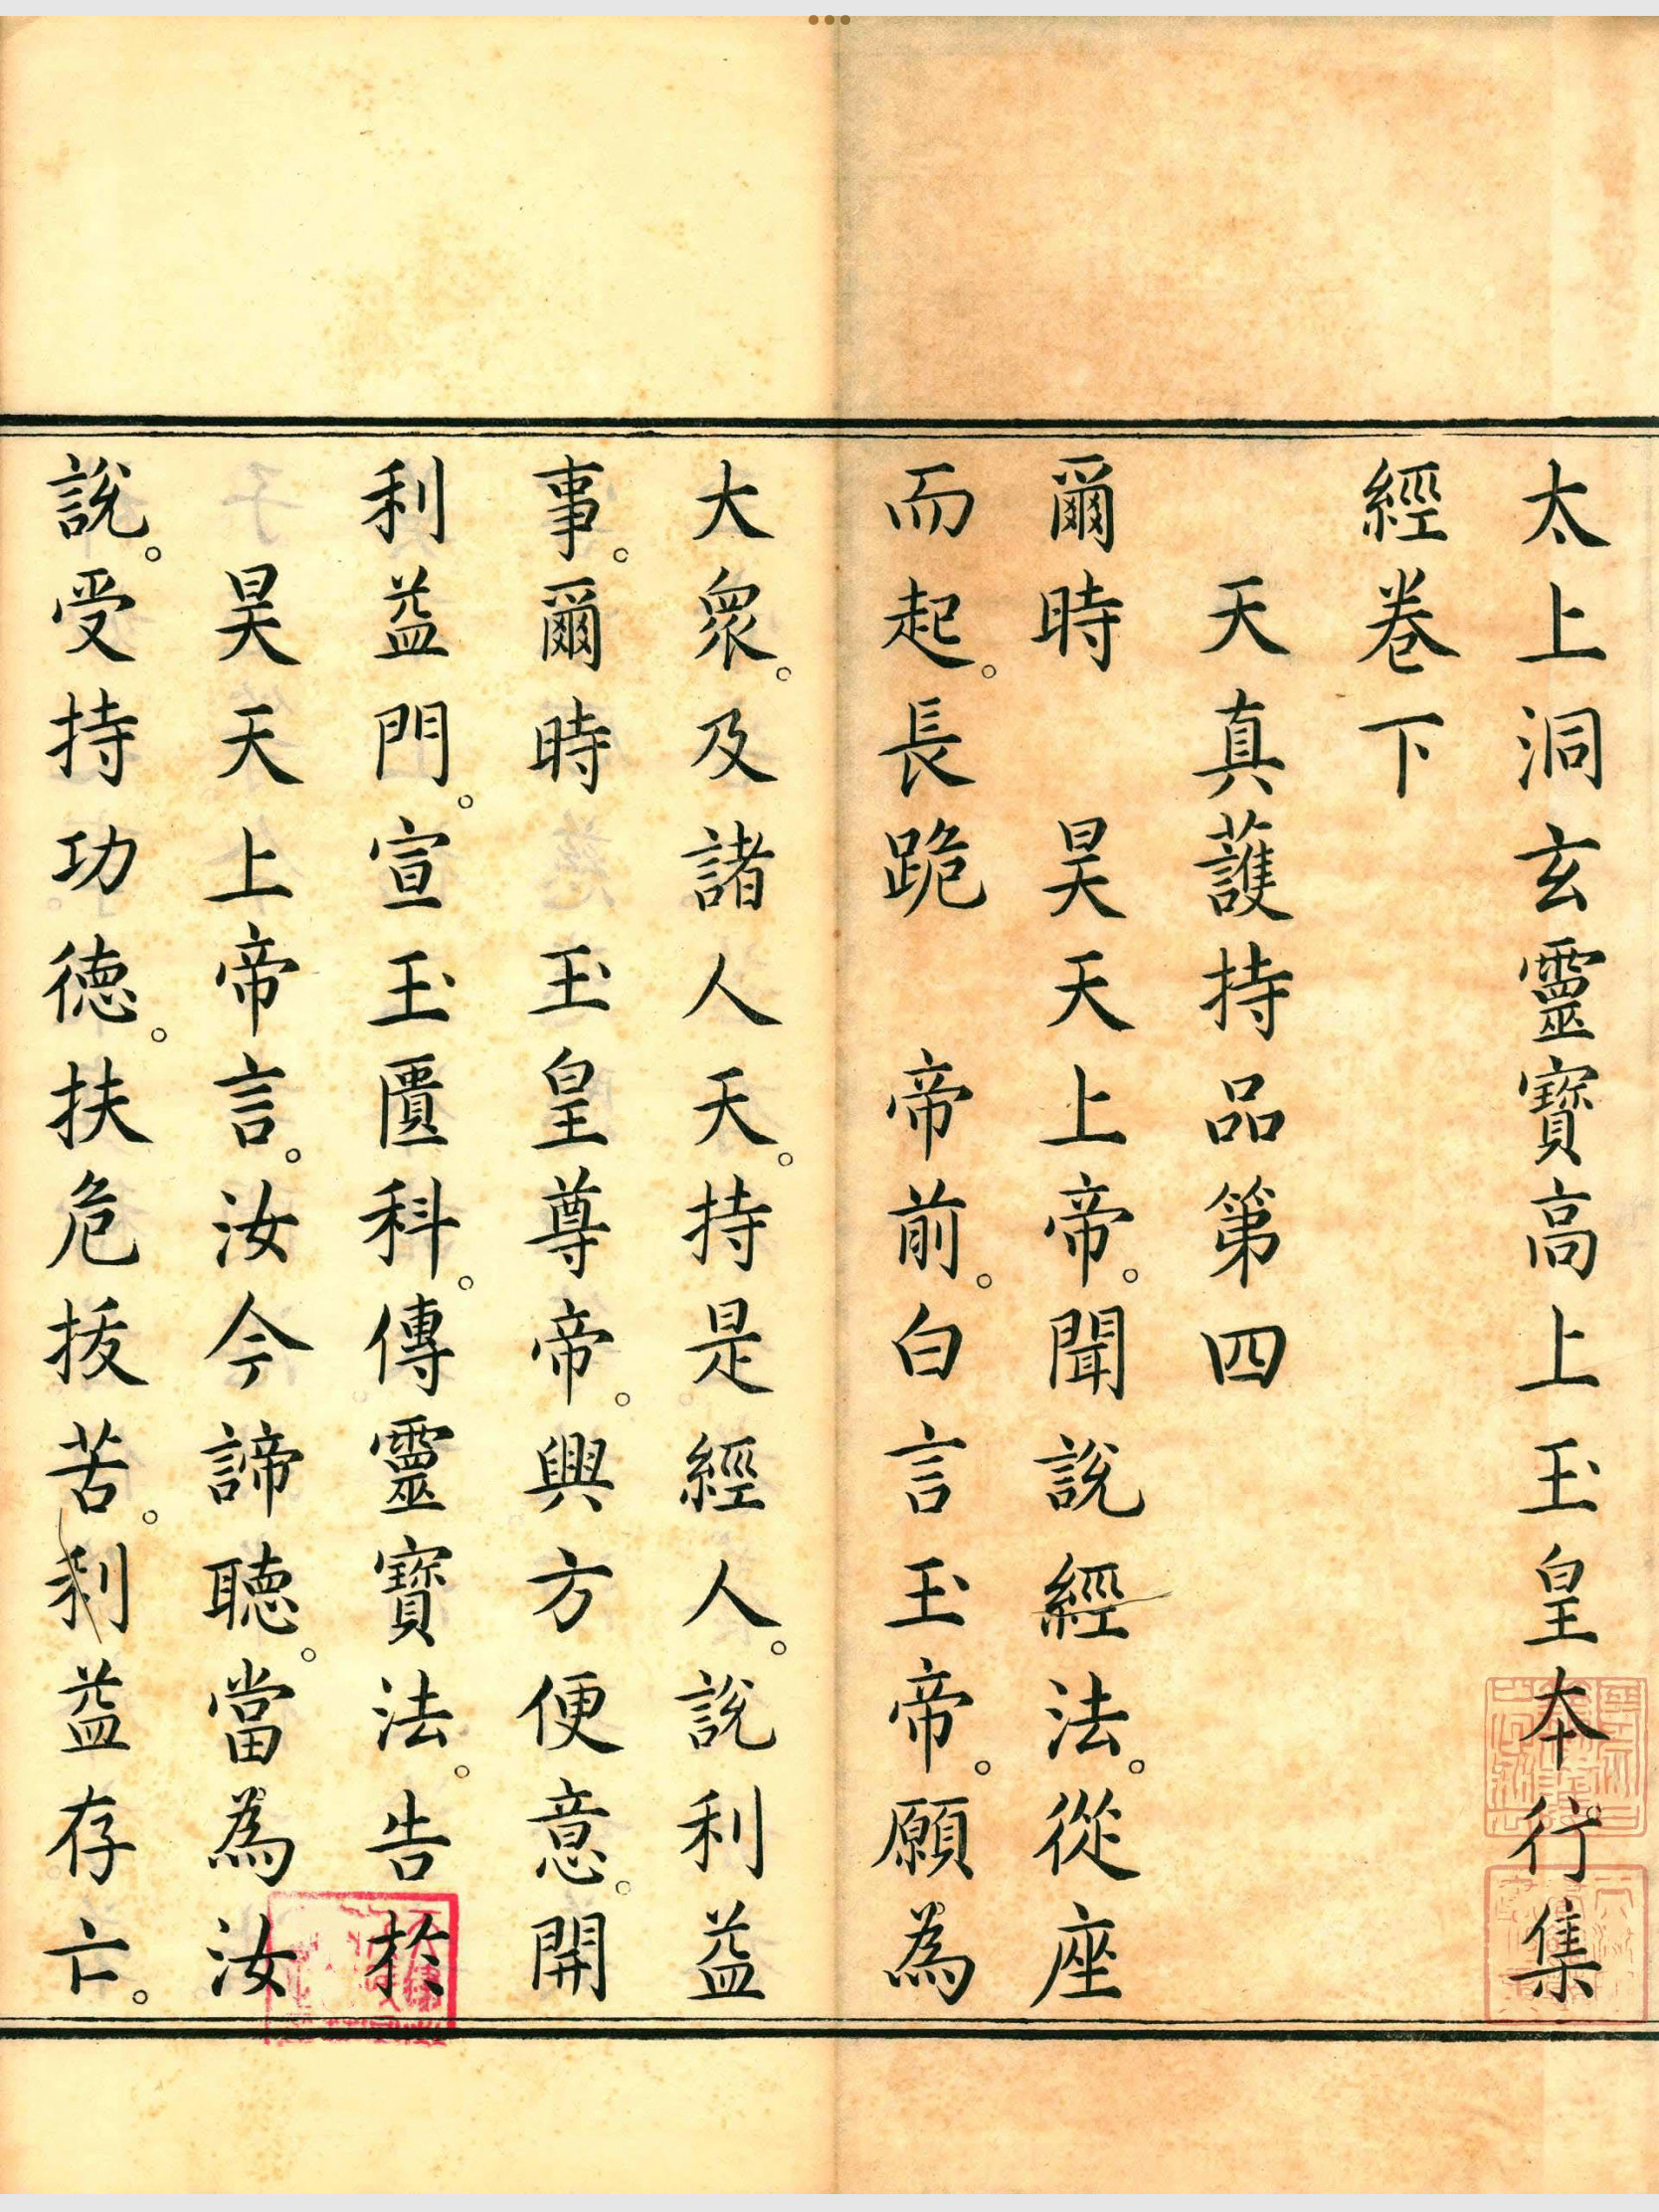 太上洞玄靈寶高上玉皇本行集
經卷下
天真護持品第四
爾時　昊天上帝。聞說經法。從座
而起。長跪　帝前。白言玉帝。願為
大衆。及諸人天。持是經人。說利益
事。爾時玉皇尊帝。興方便意。開
利益門。宣玉匱科。傳靈寶法。告於
昊天上帝言。汝今諦聽。當為汝
說。受持功德。扶危拔苦。利益存亡。